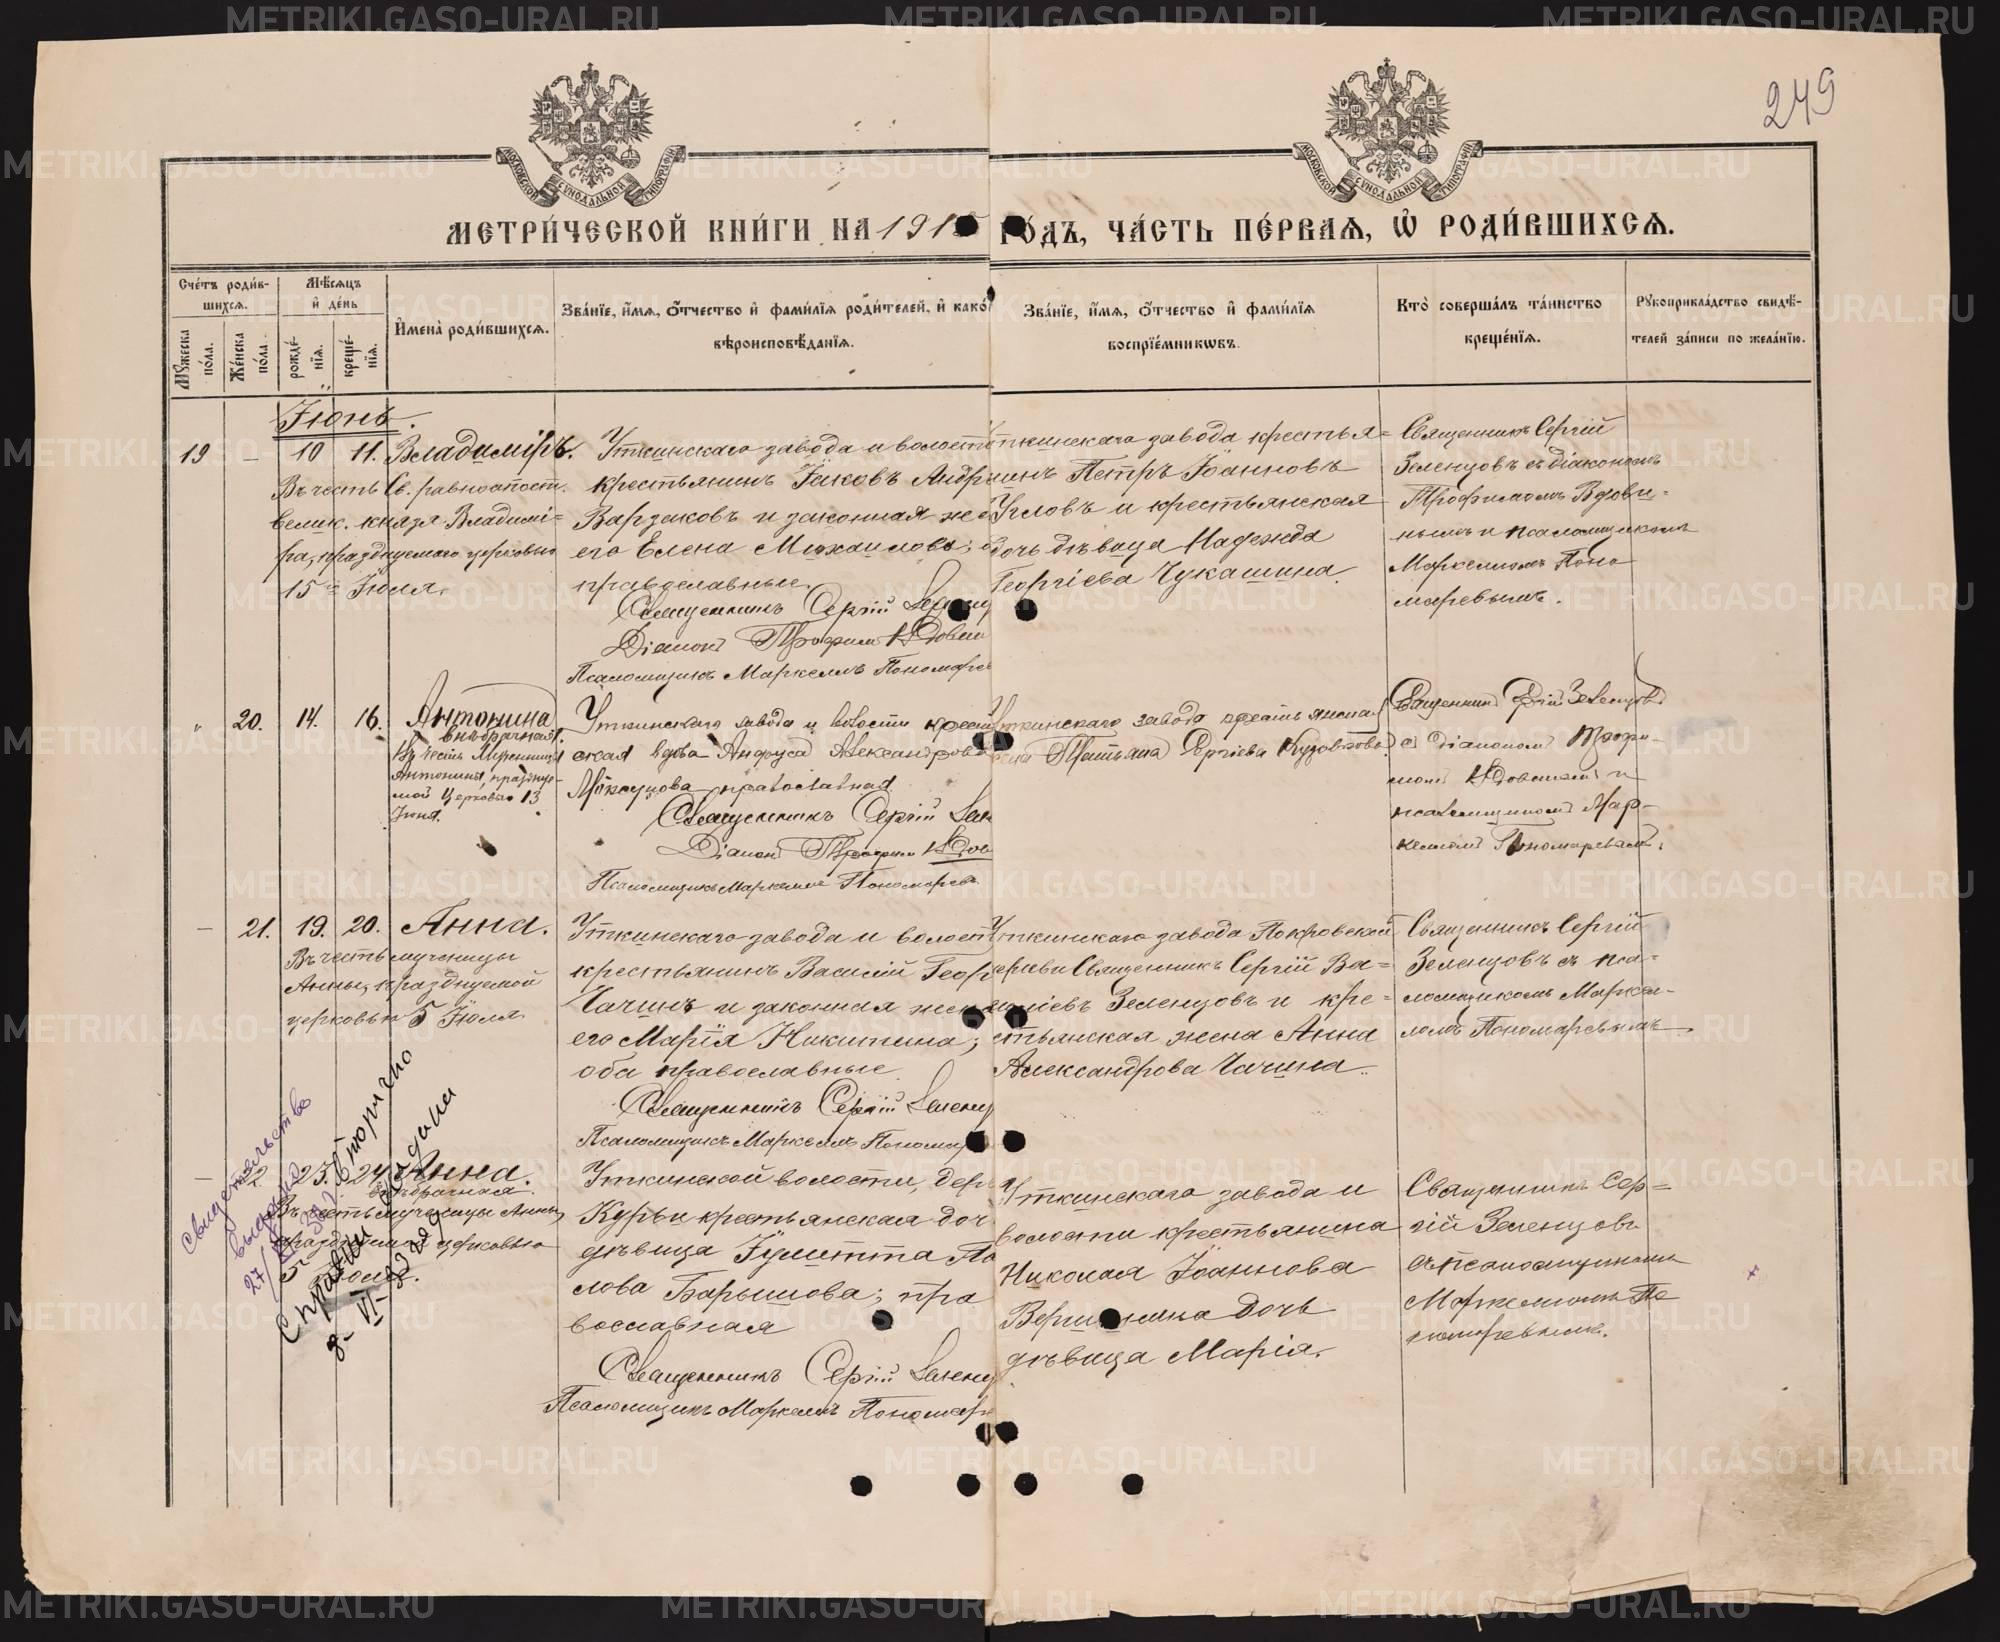 249
МОСКОВСКОЙ СѴНОДАЛЬНОЙ ТИПОГРАФІИ
МОСКОВСКОЙ СѴНОДАЛЬНОЙ ТИПОГРАФІИ
МЕТРИ́ЧЕСКОЙ КНИ́ГИ НА 191 ГО́ДЪ, ЧА́СТЬ ПЕ́РВАѦ, Ѡ РОДИ́ВШИХСѦ.
Сче́тъ роди́в-
шихсѧ.
Мѣ́сѧцъ
и҆ де́нь
Мꙋ́жеска
по́ла.
Же́нска
по́ла.
рожде́-
нїѧ.
креще́-
нїѧ.
И҆мена̀ роди́вшихсѧ.
Зва́нїе, и҆́мѧ, ѻ҆́тчество и҆ фами́лїѧ роди́телей, и҆ како́
вѣроисповѣ́данїѧ.
Зва́нїе, и҆́мѧ, ѻ҆́тчество и҆ фами́лїѧ
воспрїе́мникѡвъ.
Кто̀ соверша́лъ та́инство
креще́нїѧ.
Рꙋкоприкла́дство свидѣ́-
телей за́писи по жела́нїю.
Іюнь.
19 – 10 11. Владиміръ.
Въ честь Св. равноапост.
велик. князя Владимі-
ра, празднуемаго церковью
15го Іюля.
Уткинскаго завода и волости
крестьянинъ Іаковъ Андр
Варзаковъ и законная же
его Елена Михаилова; о
православные.
Священникъ Сергій Зеленц
Діаконъ Трофим Вдовин
Псаломщикъ Маркеллъ Пономаре
Уткинскаго завода крестья=
нинъ Петръ Іоанновъ
Угловъ и крестьянская
дочь дѣвица Надежда
Георгіева Чукашина.
Священникъ Сергій
Зеленцовъ съ діакономъ
Трофимомъ Вдови-
нымъ и псаломщикомъ
Маркелломъ Поно
маревымъ.
" 20. 14. 16. Антонина
внѣбрачная.
Въ честь Мученицы
Антонины, празднуе-
мой Церковью 13
Іюня.
Уткинскаго завода и волости крест
ская вдова Анфуса Александрова
православная
Священникъ Сергій Зел
Діаконъ Трофим Вдов
Псаломщикъ Маркеллъ Пономарев
Уткинскаго завода крестьянская
Татьяна Сергіева
Священникъ Сергій Зеленцовъ
съ діакономъ Трофи-
момъ Вдовинымъ и
псаломщикомъ Мар-
келломъ Пономаревымъ.
– 21. 19. 20. Анна.
Въ честь мученицы
Анны, празднуемой
церковью 5 Іюля
Уткинскаго завода и волости
крестьянинъ Василій Геор
Чачинъ и законная жена
его Марія Никитина;
оба православные
Священникъ Сергій Зеленц
Псаломщикъ Маркеллъ Поном
Уткинскаго завода Покровской
церкви Священникъ Сергій Ва=
силіевъ Зеленцовъ и кре=
стьянская жена Анна
Александрова Чачина.
Священникъ Сергій
Зеленцовъ съ пса-
ломщикомъ Маркел-
ломъ Пономаревымъ
– 22 23. 24 Анна.
внѣбрачная.
Въ честь мученицы Анны,
празднуемой церковью
5 Іюля.
Уткинской волости, дер
Курьи крестьянская доч
дѣвица Іулитта Па
лова Барышова; пра
вославная
Священникъ Сергій Зеленц
Псаломщикъ Маркеллъ Пономар
Уткинскаго завода и
волости крестьянина
Николая Іоаннова
Вершинина дочь
дѣвица Марія.
Священникъ Сер=
гій Зеленцовъ
съ псаломщикомъ
Маркелломъ По
номаревымъ.
Свидетельство
выдано
27/
Справки выданы
вторично
8-VI-